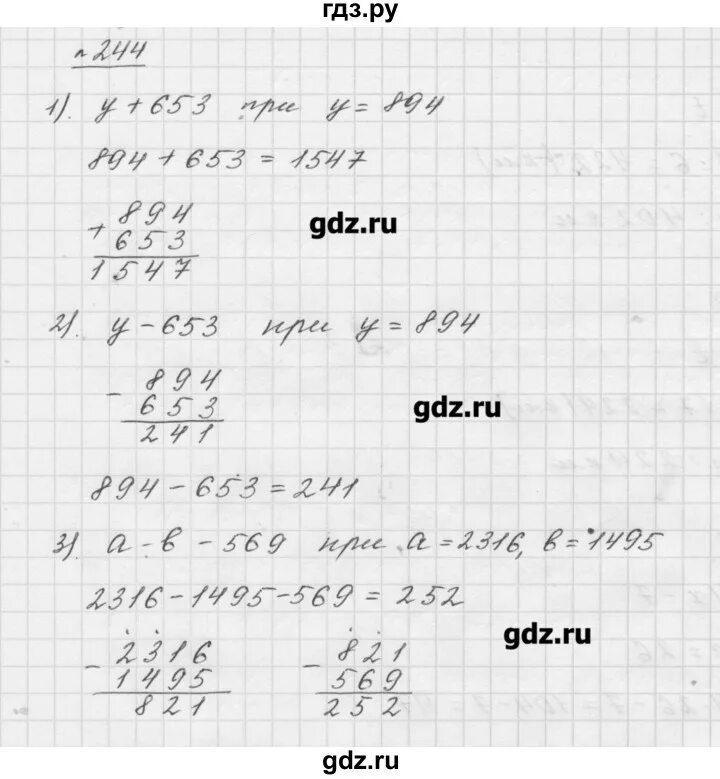 гдз.ру
n 244
1). y + 653 при y = 894
894 + 653 = 1547
+ 894
653
1547
gdz.ru
2). y - 653 при y = 894
- 894
653
241
gdz.ru
894 - 653 = 241
3) a - в - 569 при a = 2316, в = 1495
2316 - 1495 - 569 = 252
gdz.ru
- 2316 - 821
1495 569
821 252
gdz.ru